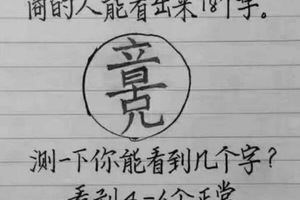 商的人能看出来18个字。
竟
测一下你能看到几个字?
看到4-6个正常